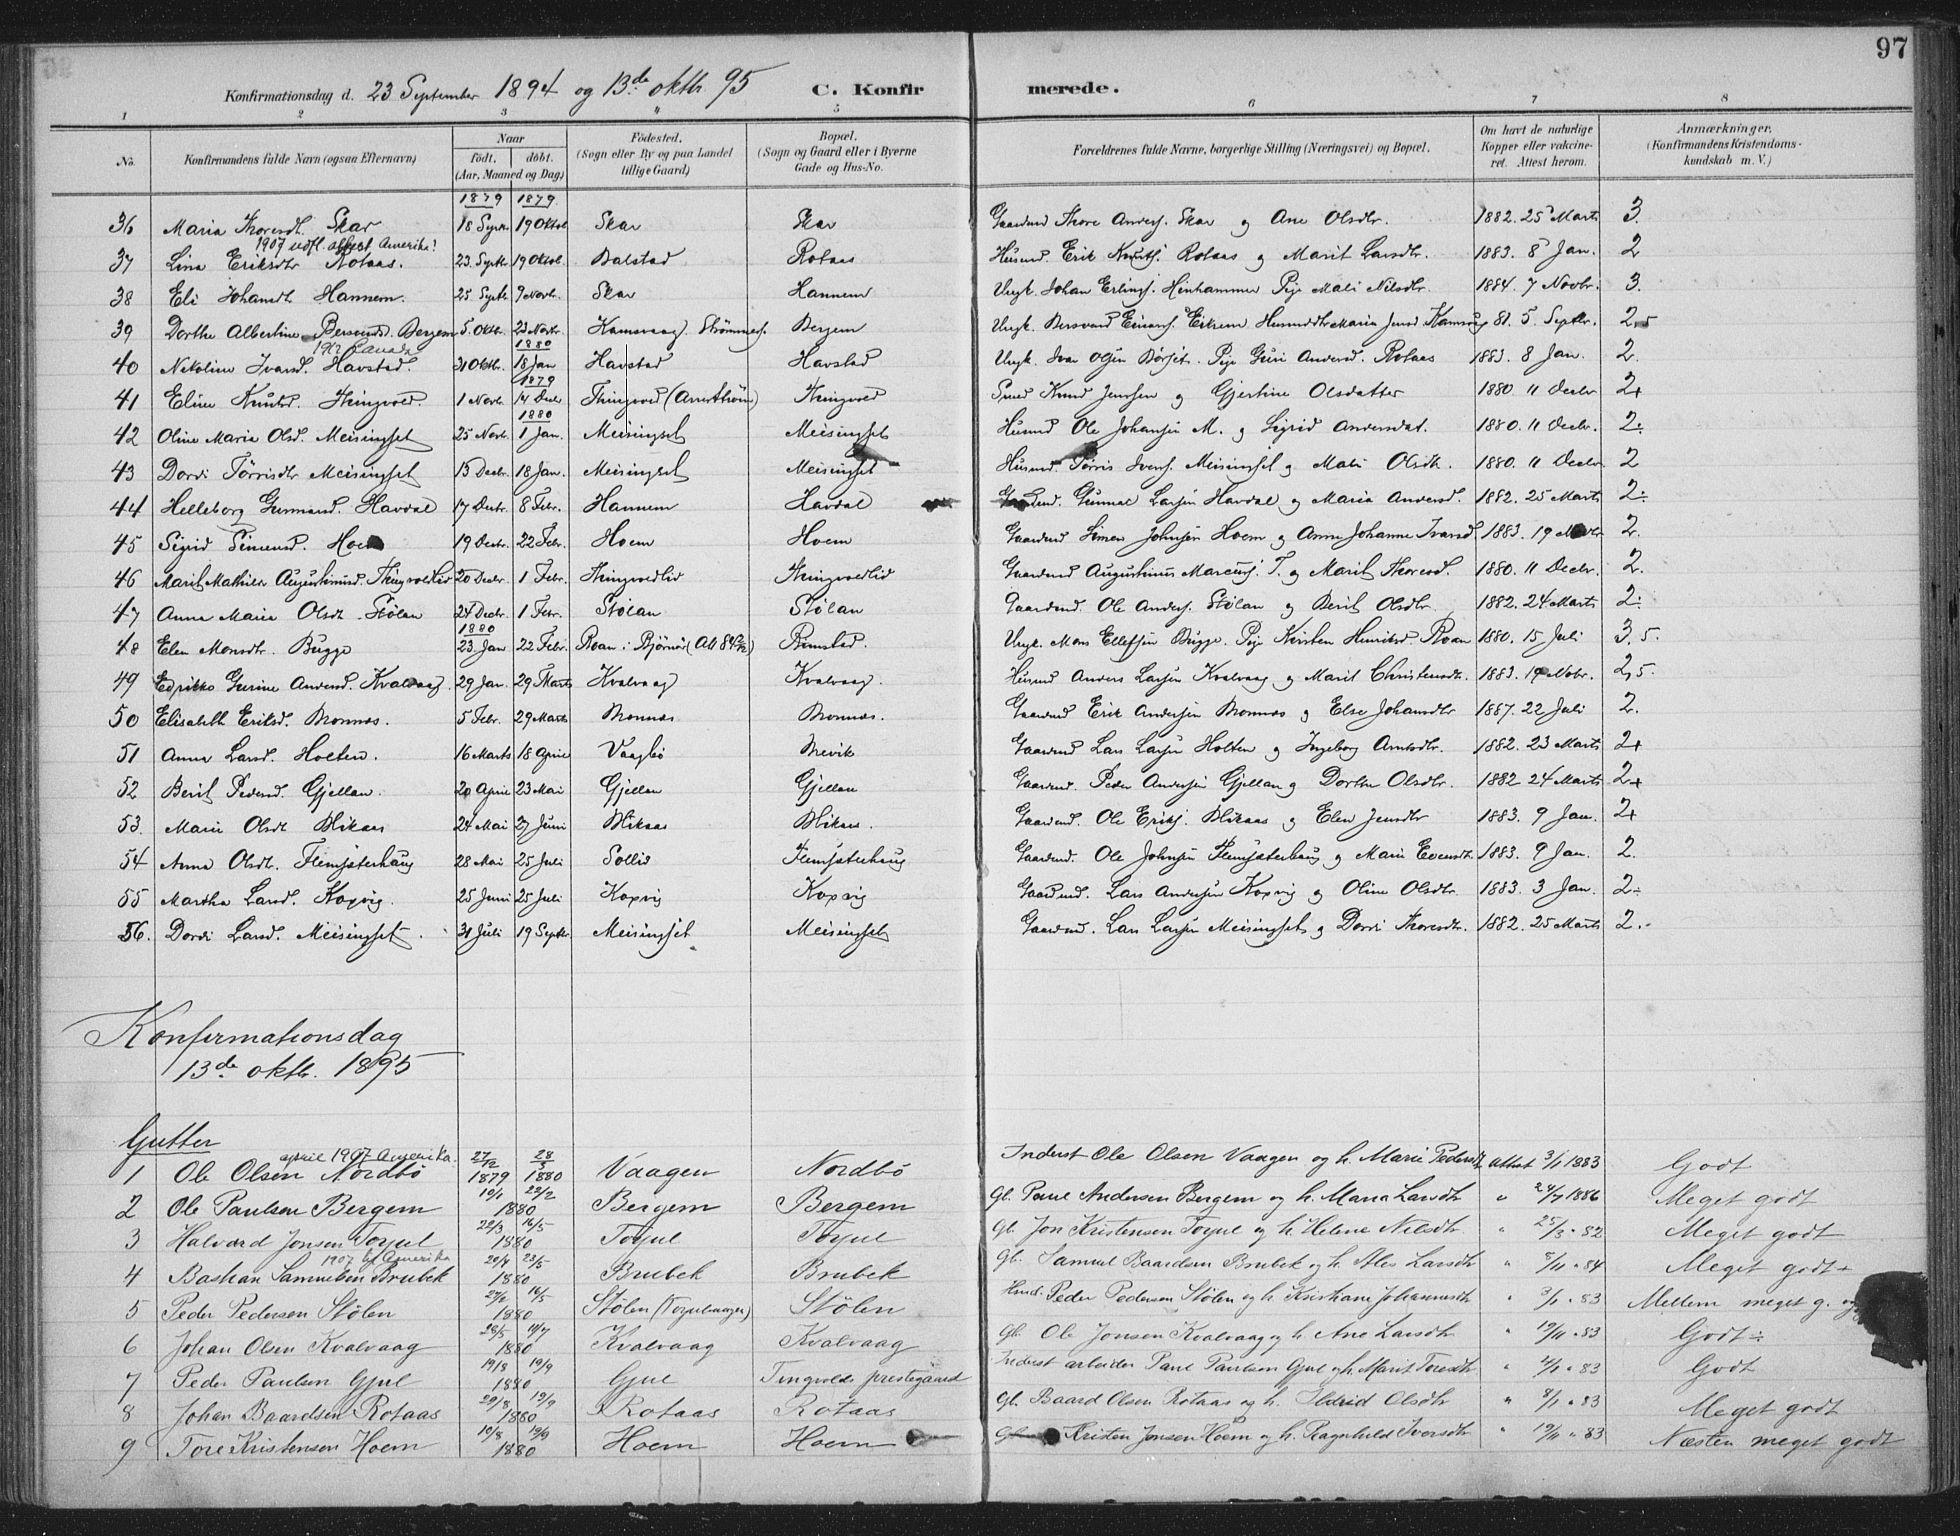 97
Konfirmationsdag d. 23 September 1894 og 13de oktbr 95 C. Konfirmerede.
1 2 3 4 5 6 7 8
No. Konfirmandens fulde Navn (ogsaa Efternavn) Naar født. døbt. (Aar, Maaned og Dag) Fødested. (Sogn eller By og paa Landet tillige Gaard) Bopæl. (Sogn og Gaard eller i Byerne Gade og Hus-No. Forældrenes fulde Navne, borgerlige Stilling (Næringsvei) og Bopæl. Om havt de naturlige Kopper eller vakcineret. Attest herom. Anmærkninger. (Konfirmandens Kristendomskundskab m. V.)
1879 1879
36 Maria Thoresdt. Skar 18 Septr. 19 Oktob. Skar Skar Gaardmd Thore Anders. Skar og Ane Olsdtr. 1882. 25 Marts 3.
1907 udfl. attest Amerika!
37 Lina Eriksdtr Rotaas. 23. Septbr 19 Oktob. Balstad Rotaas Husmd. Erik Knuts. Rotaas og Marit Larsdtr. 1883. 8 Jan. 2
38 Eli Johansdt. Hannem. 25 Septb. 9 Novbr. Skar Hannem Ungk. Johan Erlings. Heinhammer Pige Mali Nilsdtr. 1884. 7 Novbr. 3.
39 Dorthe Albertine Bersvends. Bergem 5 Oktbr. 23 Novbr. Kamsvaag Strømmes. Bergem Ungk. Bersvend Einars. Eikrem Husmdtr Maria Jensd Kamsvag 81. 5. Septbr. 2,5
1880
1902 Canada
40 Nikoline Ivarsd. Havstad. 31 Oktbr. 18 Jan Havstad Havstad Ungk. Ivar Olsen Børset. Pige Guri Andersd. Rotaas 1883. 8 Jan. 2.
1879
41 Eline Knutsd. Thingvold. 1 Novbr. 14 Decbr Thingvold Thingvold Smed Knud Jenssen og Gjertine Olsdatter 1880. 11 Decbr 2+
1880
42 Oline Maria Olsd. Meisingset 25 Novb. 1 Jan. Meisingset Meisingset Husmd Ole Johansen M. og Sigrid Andersdat. 1880. 11 Decbr. 2.
43 Dordi Tørrisdtr Meisingset 13 Decbr. 18 Jan. Meisingset Meisingset Husmd. Tørris Ivers. Meisingset og Mali Olsdtr. 1880. 11 Decbr 2
44 Helleborg Gunnarsd. Havdal 17 Decbr. 8 Febr. Hannem Havdal Gaardmd. Gunnar Larsen Havdal og Maria Andersd. 1882. 25 Marts 2÷
45 Sigrid Simensd. Hoem 19 Decbr. 22 Febr. Hoem Hoem Gaardmd Simen Johnsen Hoem og Anne Johanne Ivarsd 1883. 19 Novbr 2.
46 Marit Mathilde Augustinusd. Thingvoldlid 20 Decbr. 1 Febr. Thingvoldlid Thingvoldlid Gaardmd Augustinus Marcus. T. og Marit Thoresd. 1880. 11 Decbr. 2.
47 Anna Maria Olsdt. Stølan 24 Decbr. 1 Febr. Stølan Stølan Gaardmd. Ole Anders. Stølan og Berit Olsdtr. 1882. 24 Marts 2.
1880
48 Elen Monsdtr. Bugge 23. Jan 22 Febr. Roan i Bjørnør Rimstad. Ungk. Mons Ellefsen Bugge. Pige Kirsten Henriksd. Roan 1880. 15 Juli 3,5.
49 Edrikke Gurine Andersd. Kvalvaag 29 Jan. 29 Marts Kvalvaag Kvalvaag. Husmd Anders Larsen Kvalvaag og Marit Christensdtr. 1883. 19 Nobr. 2,5.
50 Elisabeth Eriksd. Bronnæs. 5 Febr. 29 Marts Bronnæs Bronnæs. Gaardmd Erik Andersen Bronnæs og Else Johansdtr 1887. 22 Juli 2.
51 Anna Larsd. Holten. 16 Marts 18 April Vaagbø Brevik Gaardmd Lars Larsen Holten og Ingeborg Arntsdtr. 1882. 23 Marts 2+
52 Berit Pedersd. Gjellan. 20 April 23 Mai Gjellan Gjellan Gaardmd. Peder Andersen Gjellan og Dorthe Olsdtr. 1882 24 Marts 2+
53. Marie Olsdt Blikaas 24 Mai 27 Juni Blikaas Blikaas. Gaardmd. Ole Eriks. Blikaas og Elen Jensdtr 1883. 9 Jan. 2+
54 Anna Olsdt. Flemsæterhaug 28 Mai 25 Juli Sollid Flemsæterhaug Gaardmd. Ole Johnsen Flemsæterhaug og Marie Evensdtr. 1883. 9 Jan. 2.
55 Martha Larsd. Koxvig. 25 Juni 25 Juli Koxvig Koxvig Gaardmd. Lars Andersen Koxvig og Oline Olsdtr. 1883. 3 Jan. 2÷
56. Dordi Larsd. Meisingset. 31 Juli 19 Septbr. Meisingset Meisingset Gaardmd. Lars Larsen Meisingset og Dordi Thoresdtr. 1882. 25 Marts 2.
Konfirmationsdag
13de oktbr. 1895
Gutter
april 1907 Amerika.
1 Ole Olsen Nordbø 27/12 1879 28/3 1880 Vaagen Nordbø Inderst Ole Olsen Vaagen og h. Marie Pedersdt Attest 3/11 1883 Godt
2 Ole Paulsen Bergem 10/1 22/2 1880 Bergem Bergem Gb. Paul Andersen Bergem og h. Maria Larsdtr " 24/7 1886 Meget godt
3 Halvard Jonsen Torjul 22/3 16/5 1880 Torjul Torjul Gb. Jon Kristensen Torjul og h. Helene Nilsdtr " 25/3 " 82 Meget godt
1907 til Amerika
4 Bastian Samuelsen Brubek 20/4 23/5 1880 Brubek Brubek Gb. Samuel Baardsen Brubek og h. Ales Larsdtr " 8/11 " 84 Meget godt÷
5 Peder Pedersen Stølen 16/5 1880 Stølen (Torjulvaagen) Stølen Husm. Peder Pedersen Stølen og h. Kristiane Johannesdtr " 3/1 " 83 Mellem meget g. og
6 Johan Olsen Kvalvaag 28/5 11/7 1880 Kvalvaag Kvalvaag Gb. Ole Jonsen Kvalvaag og h. Ane Larsdtr " 19/11 " 83 Godt÷
7 Peder Paulsen Gjul 19/8 19/9 1880 Gjul Tingvolds prestegaard Inderst arbeider Paul Paulsen Gjul og h. Marit Toresdtr " 83 Godt
8 Johan Baardsen Rotaas 29/8 19/9 1880 Rotaas Rotaas Gb. Baard Olsen Rotaas og h. Ildrid Olsdtr " 8/1 " 83 Meget godt
9 Tore Kristensen Hoem 10/8 19/9 1880 Hoem Hoem Gb. Kristen Jonsen Hoem og h. Ragnhild Iversdtr " 19/11 " 83 Næsten meget godt